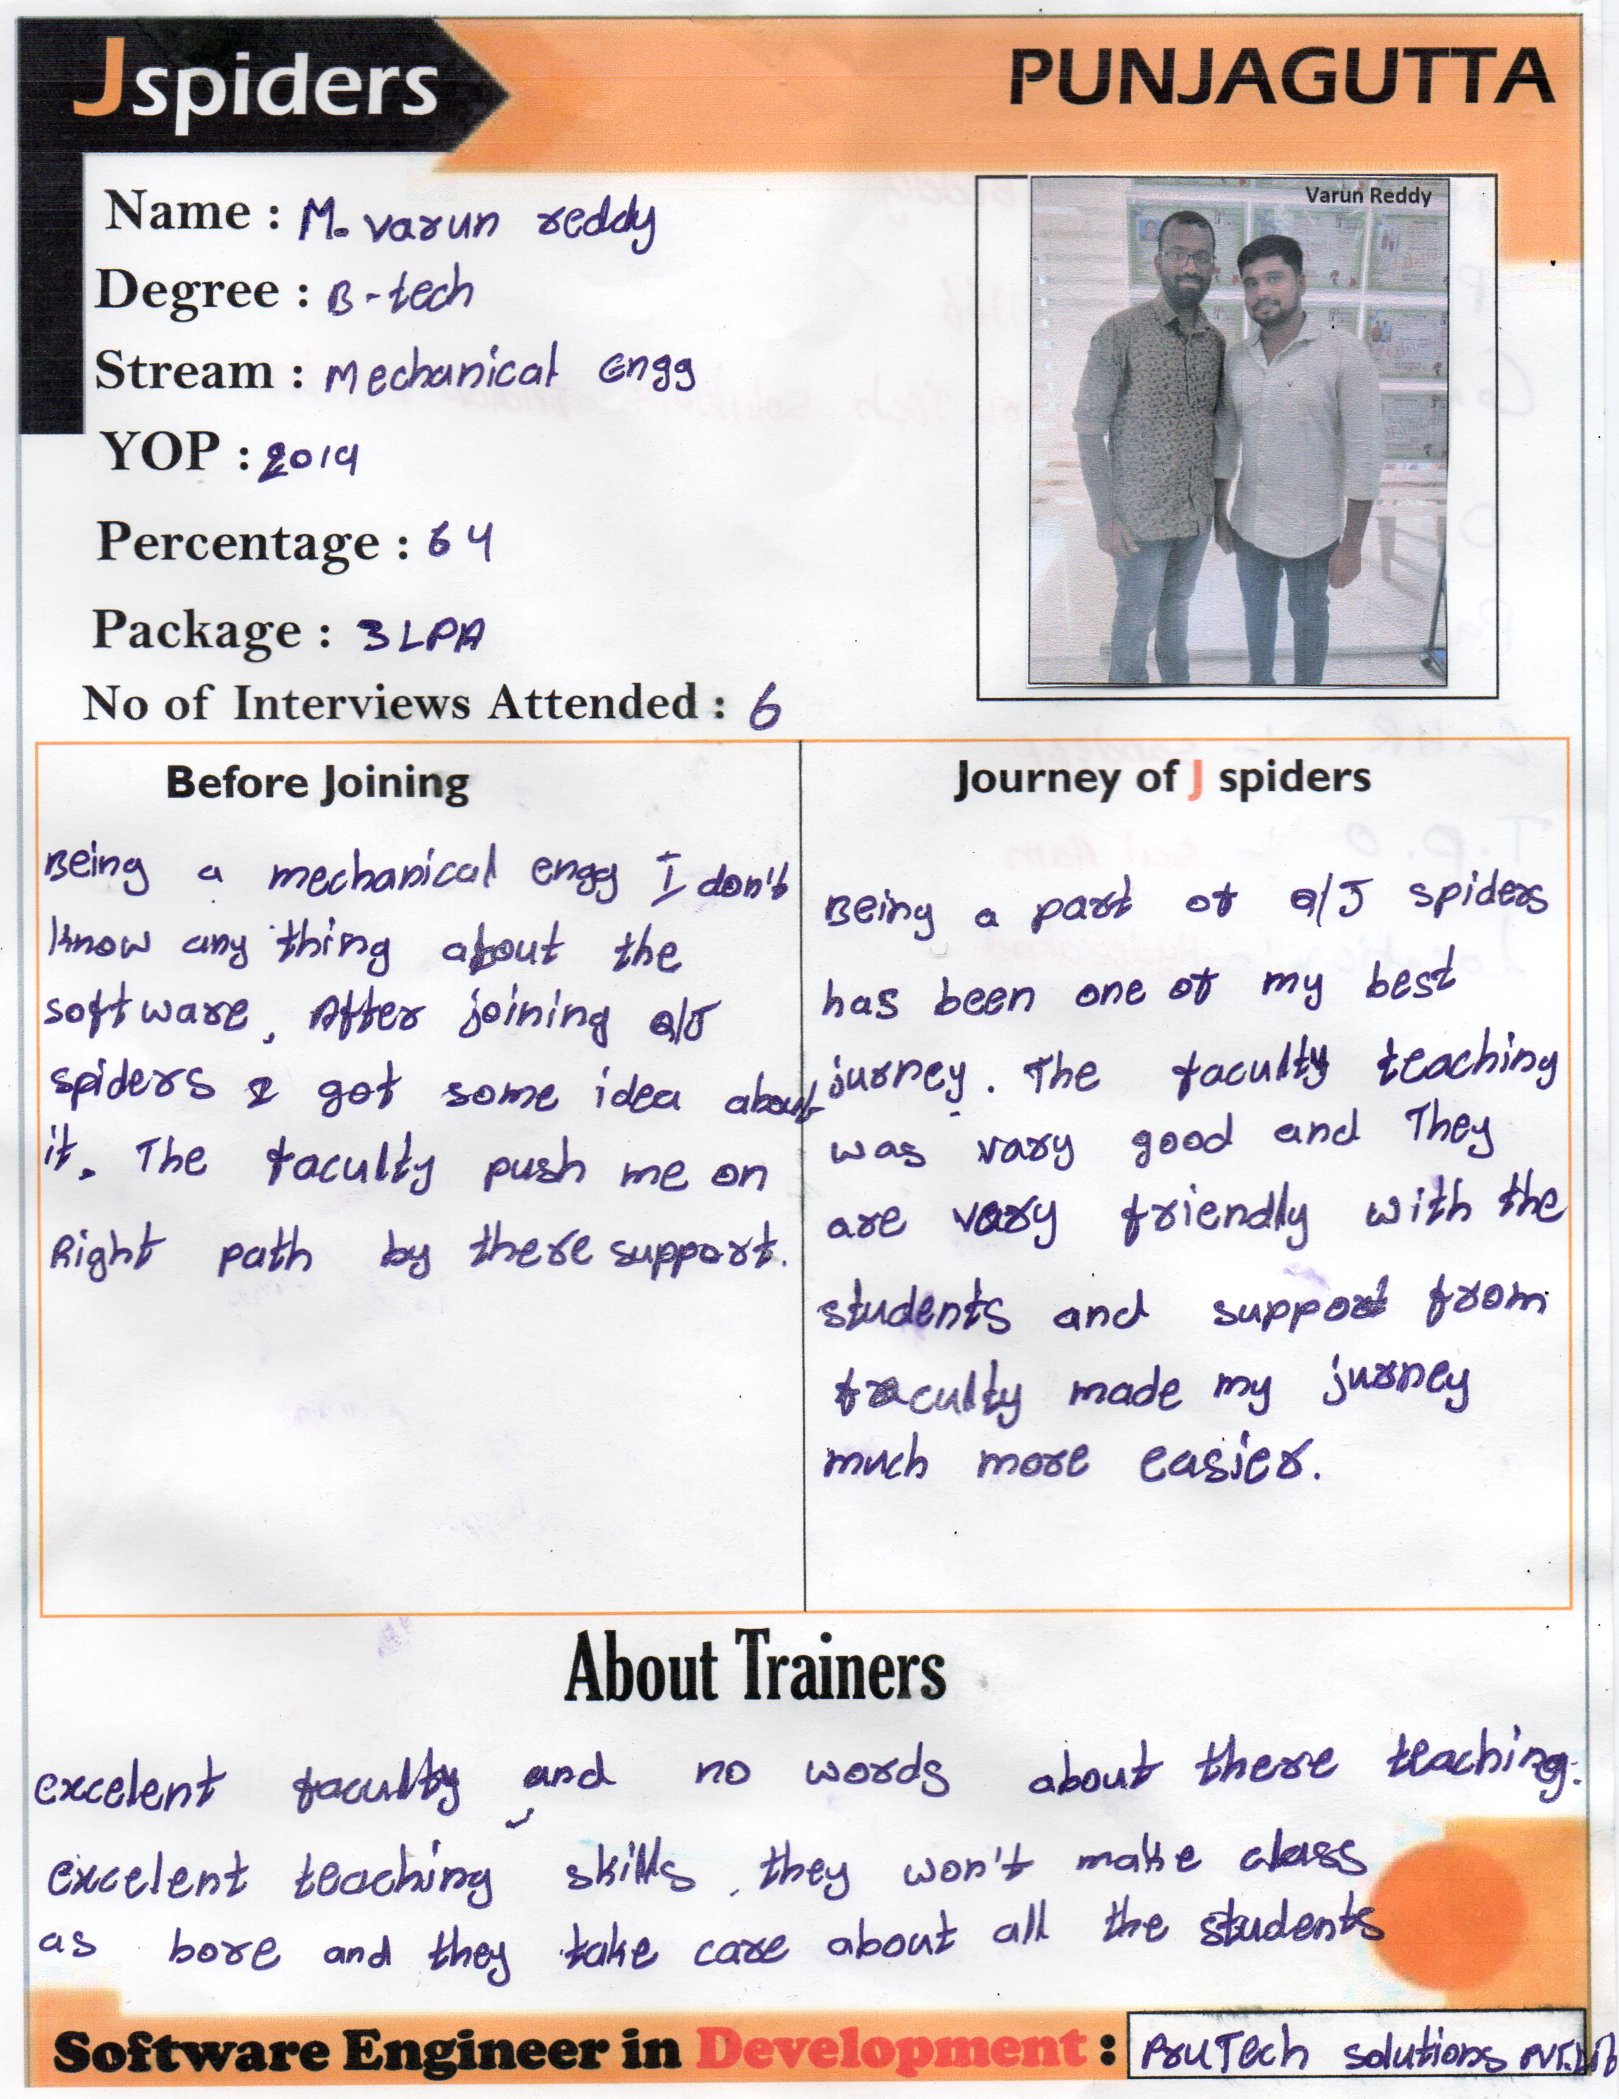 Jspiders
PUNJAGUTTA
Varun Reddy
Name : M. varun reddy
Degree : B-tech
Stream : Mechanical Engg
YOP : 2019
Percentage : 64
Package : 3 LPA
No of Interviews Attended : 6
Before Joining
Being a mechanical engg I don't
know any thing about the
software. After joining Q/J
spiders I got some idea about
it. The faculty push me on
Right path by there support.
Journey of J spiders
Being a part of Q/J spiders
has been one of my best
jurney. The faculty teaching
was vary good and They
are vary friendly with the
students and support from
faculty made my jurney
much more easier.
About Trainers
excelent faculty and no words about there teaching.
excelent teaching skills, they won't make class
as bore and they take care about all the students
Software Engineer in Development : PruTech solutions PVT.Ltd